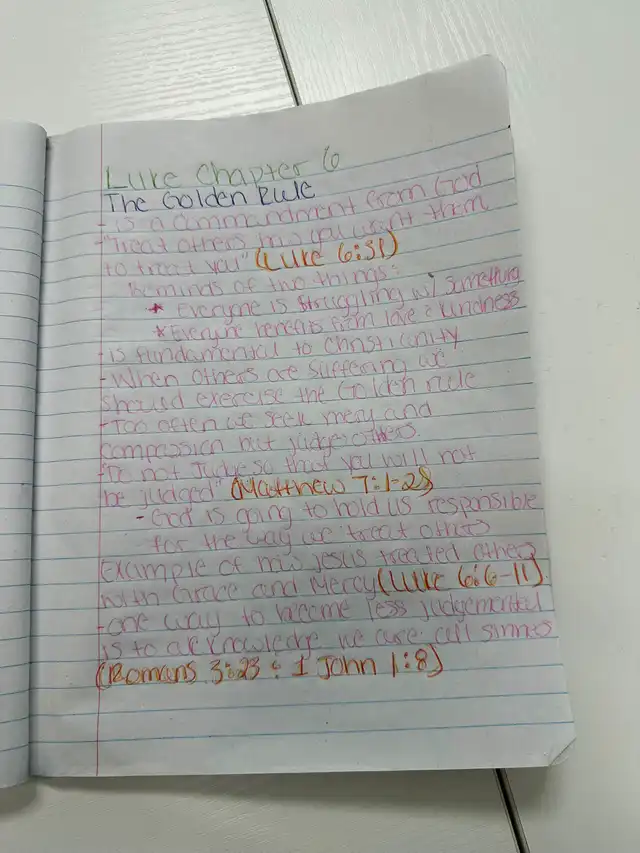 Luke Chapter 6
The Golden Rule
- is a commandment from God
- "Treat others how you want them
to treat you" (Luke 6:31)
Reminds of two things:
* Everyone is struggling w/ something
* Everyone benefits from love & kindness
- is fundamental to Christianity
- When others are suffering we
should exercise the Golden rule
- Too often we seek mercy and
compassion but judge others.
"Do not Judge so that you will not
be judged" (Matthew 7:1-28)
- God is going to hold us responsible
for the way we treat others
Example of how Jesus treated others
with Grace and Mercy (Luke 6:6-11)
- one way to become less judgemental
is to acknowledge we are all sinners
(Romans 3:23 : 1 John 1:8)